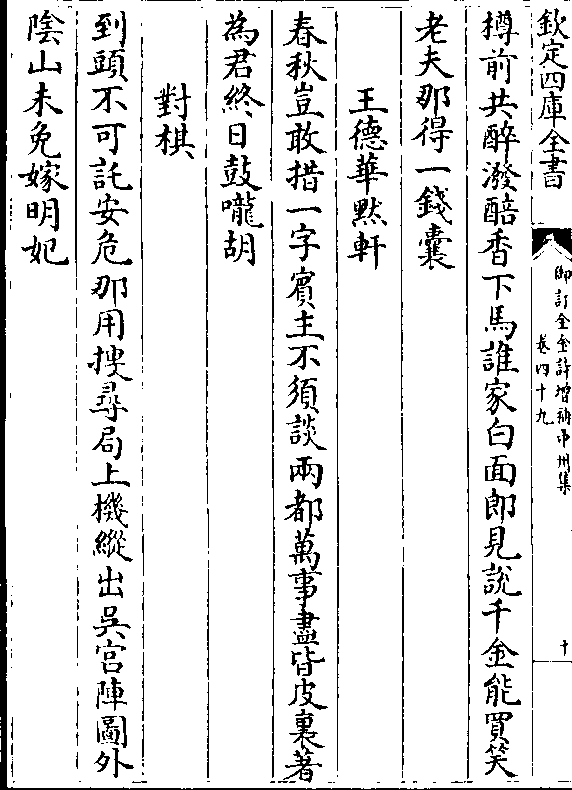 欽定四庫全書
御訂全金詩增補中州集
卷四十九
十
樽前共醉潑醅香下馬誰家白面郎見說千金能買笑
老夫那得一錢囊
王德華黙軒
春秋豈敢措一字賓主不須談兩都萬事盡皆皮裏著
為君終日鼓嚨胡
對棋
到頭不可託安危那用搜尋局上機縱出吳宫陣圖外
陰山未免嫁明妃